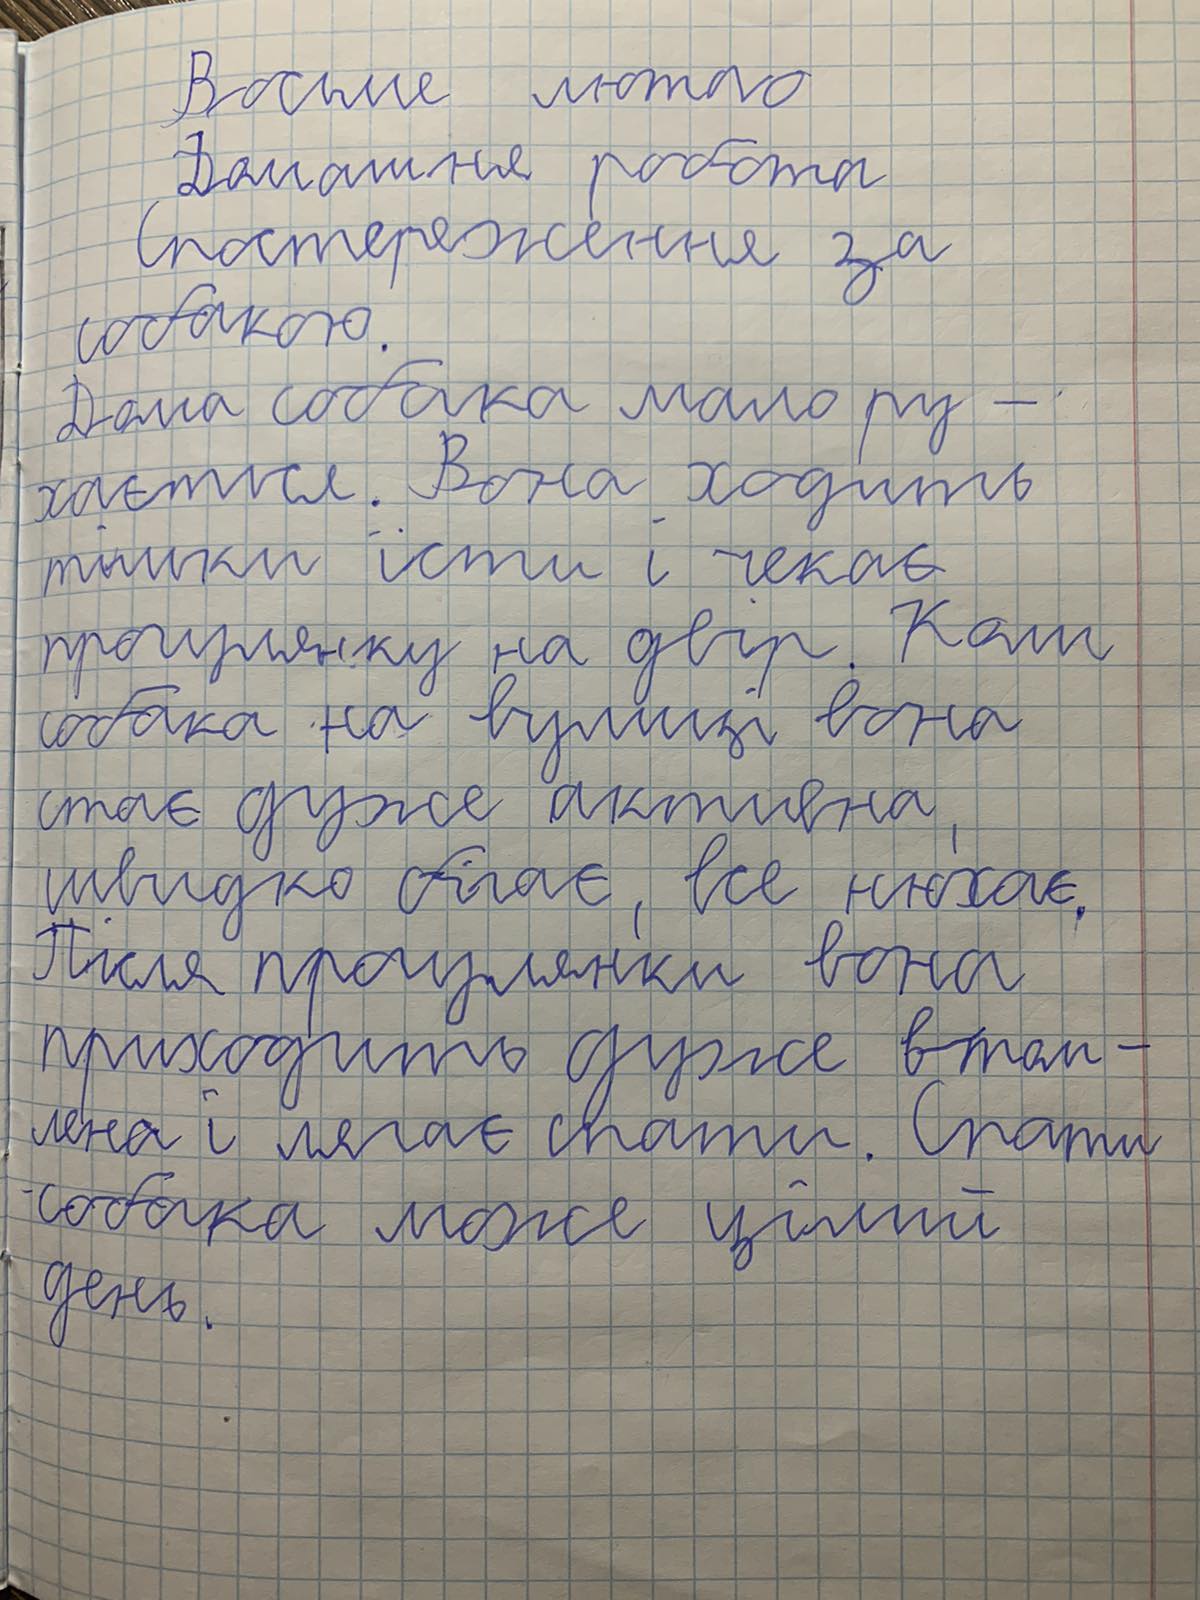 Восьме лютого
Домашня робота
Спостереження за
собакою.
Дома собака мало ру-
хається. Вона ходить
тільки їсти і чекає
прогулянку на двір. Коли
собака на вулиці вона
стає дуже активна,
швидко бігає, все нюхає.
Після прогулянки вона
приходить дуже втом-
лена і лягає спати. Спати
собака може цілий
день.